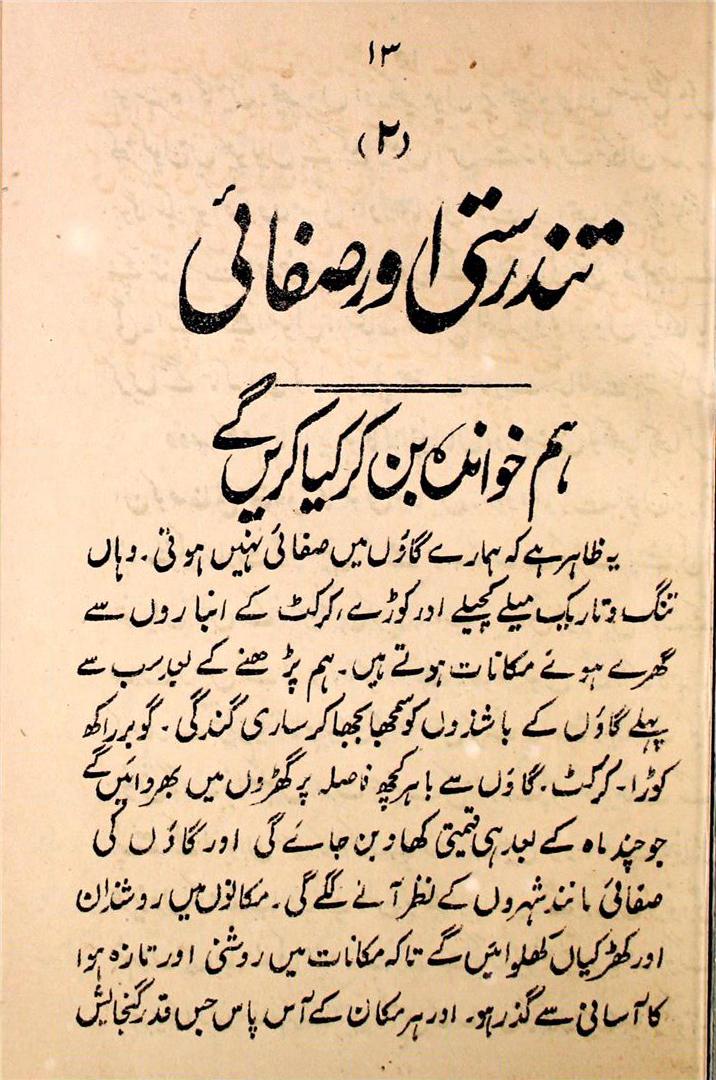 ۱۳
(۲)
تندرستی اور صفائی
ہم خواندہ بن کر کیا کریں گے
یہ ظاہر ہے کہ ہمارے گاؤں میں صفائی نہیں ہوتی ۔ وہاں
تنگ و تاریک میلے کچیلے اور کوڑے، کرکٹ کے انباروں سے
گھرے ہوئے مکانات ہوتے ہیں۔ ہم پڑھنے کے بعد سب سے
پہلے گاؤں کے باشندوں کو سمجھا بجھا کر ساری گندگی ۔ گوبر راکھ
کوڑا ۔ کرکٹ ۔ گاؤں سے باہر کچھ فاصلہ پر گھڑوں میں بھروائیں گے
جو چند ماہ کے بعد ہی قیمتی کھاد بن جائے گی اور گاؤں کی
صفائی مانند شہروں کے نظر آنے لگے گی ۔ مکانوں میں روشندان
اور کھڑکیاں کھلوائیں گے تاکہ مکانات میں روشنی اور تازہ ہوا
کا آسانی سے گذر ہو۔ اور ہر مکان کے آس پاس جس قدر گنجایش